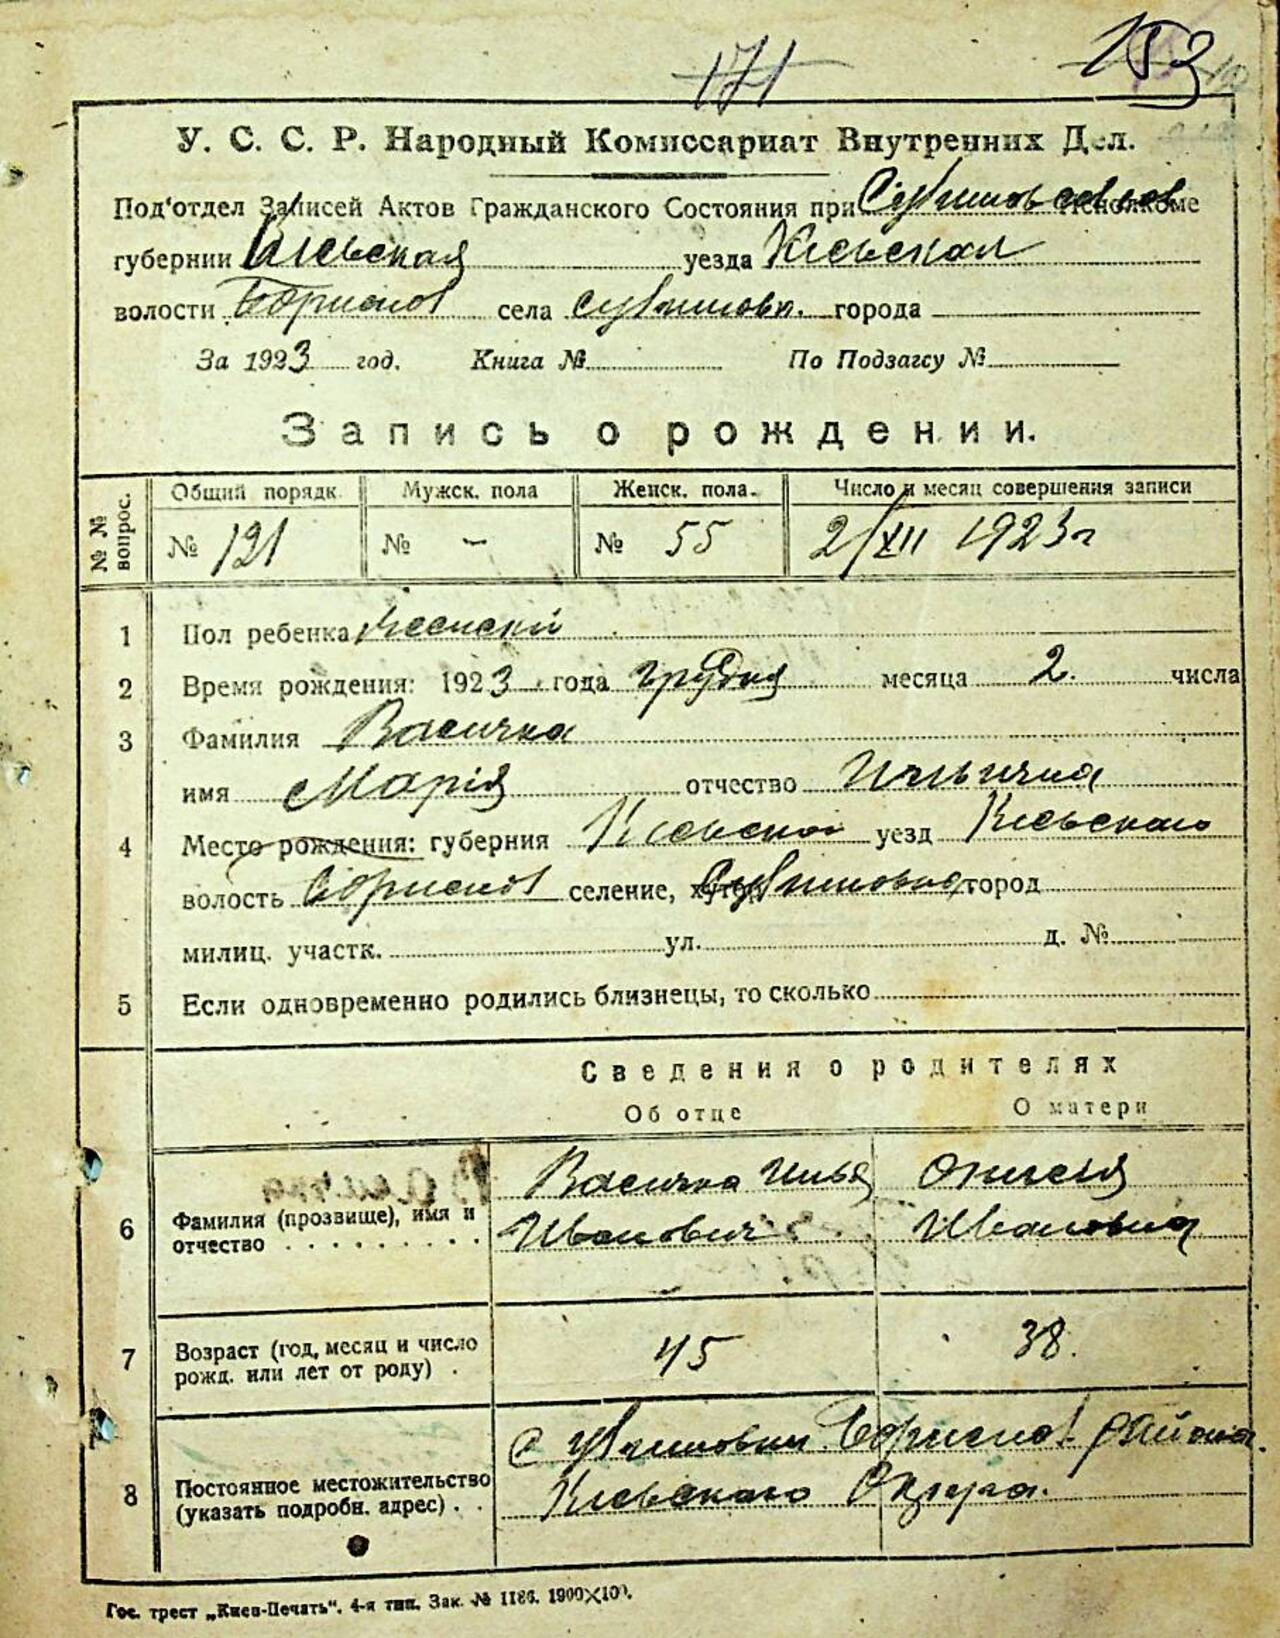 171
153
У. С. С. Р. Народный Комиссариат Внутренних Дел.
Под'отдел Записей Актов Гражданского Состояния при Исполкоме
губернии Киевская уезда Киевская
волости Борисп села города
За 1923 год. Книга № По Подзагсу №
Запись о рождении.
№№ вопрос. Общий порядк. Мужск. пола Женск. пола. Число и месяц совершения записи
№ 121 № - № 55 2/XII 1923 г
1 Пол ребенка женский
2 Время рождения: 1923 года грудня месяца 2. числа
3 Фамилия Васичка
имя Марія отчество Ильична
4 Место рождения: губерния Киевской уезд Киевского
волость селение, хутор город
милиц. участк. ул. д. №
5 Если одновременно родились близнецы, то сколько
Сведения о родителях
Об отце О матери
6 Фамилия (прозвище), имя и Васичка Илья
отчество Иванович Ивановна
7 Возраст (год, месяц и число 45 38.
рожд. или лет от роду)
8 Постоянное местожительство с района.
(указать подробн. адрес) Киевского Округа.
Гос. трест „Киев-Печать“. 4-я тип. Зак. № 1186. 1900×100.